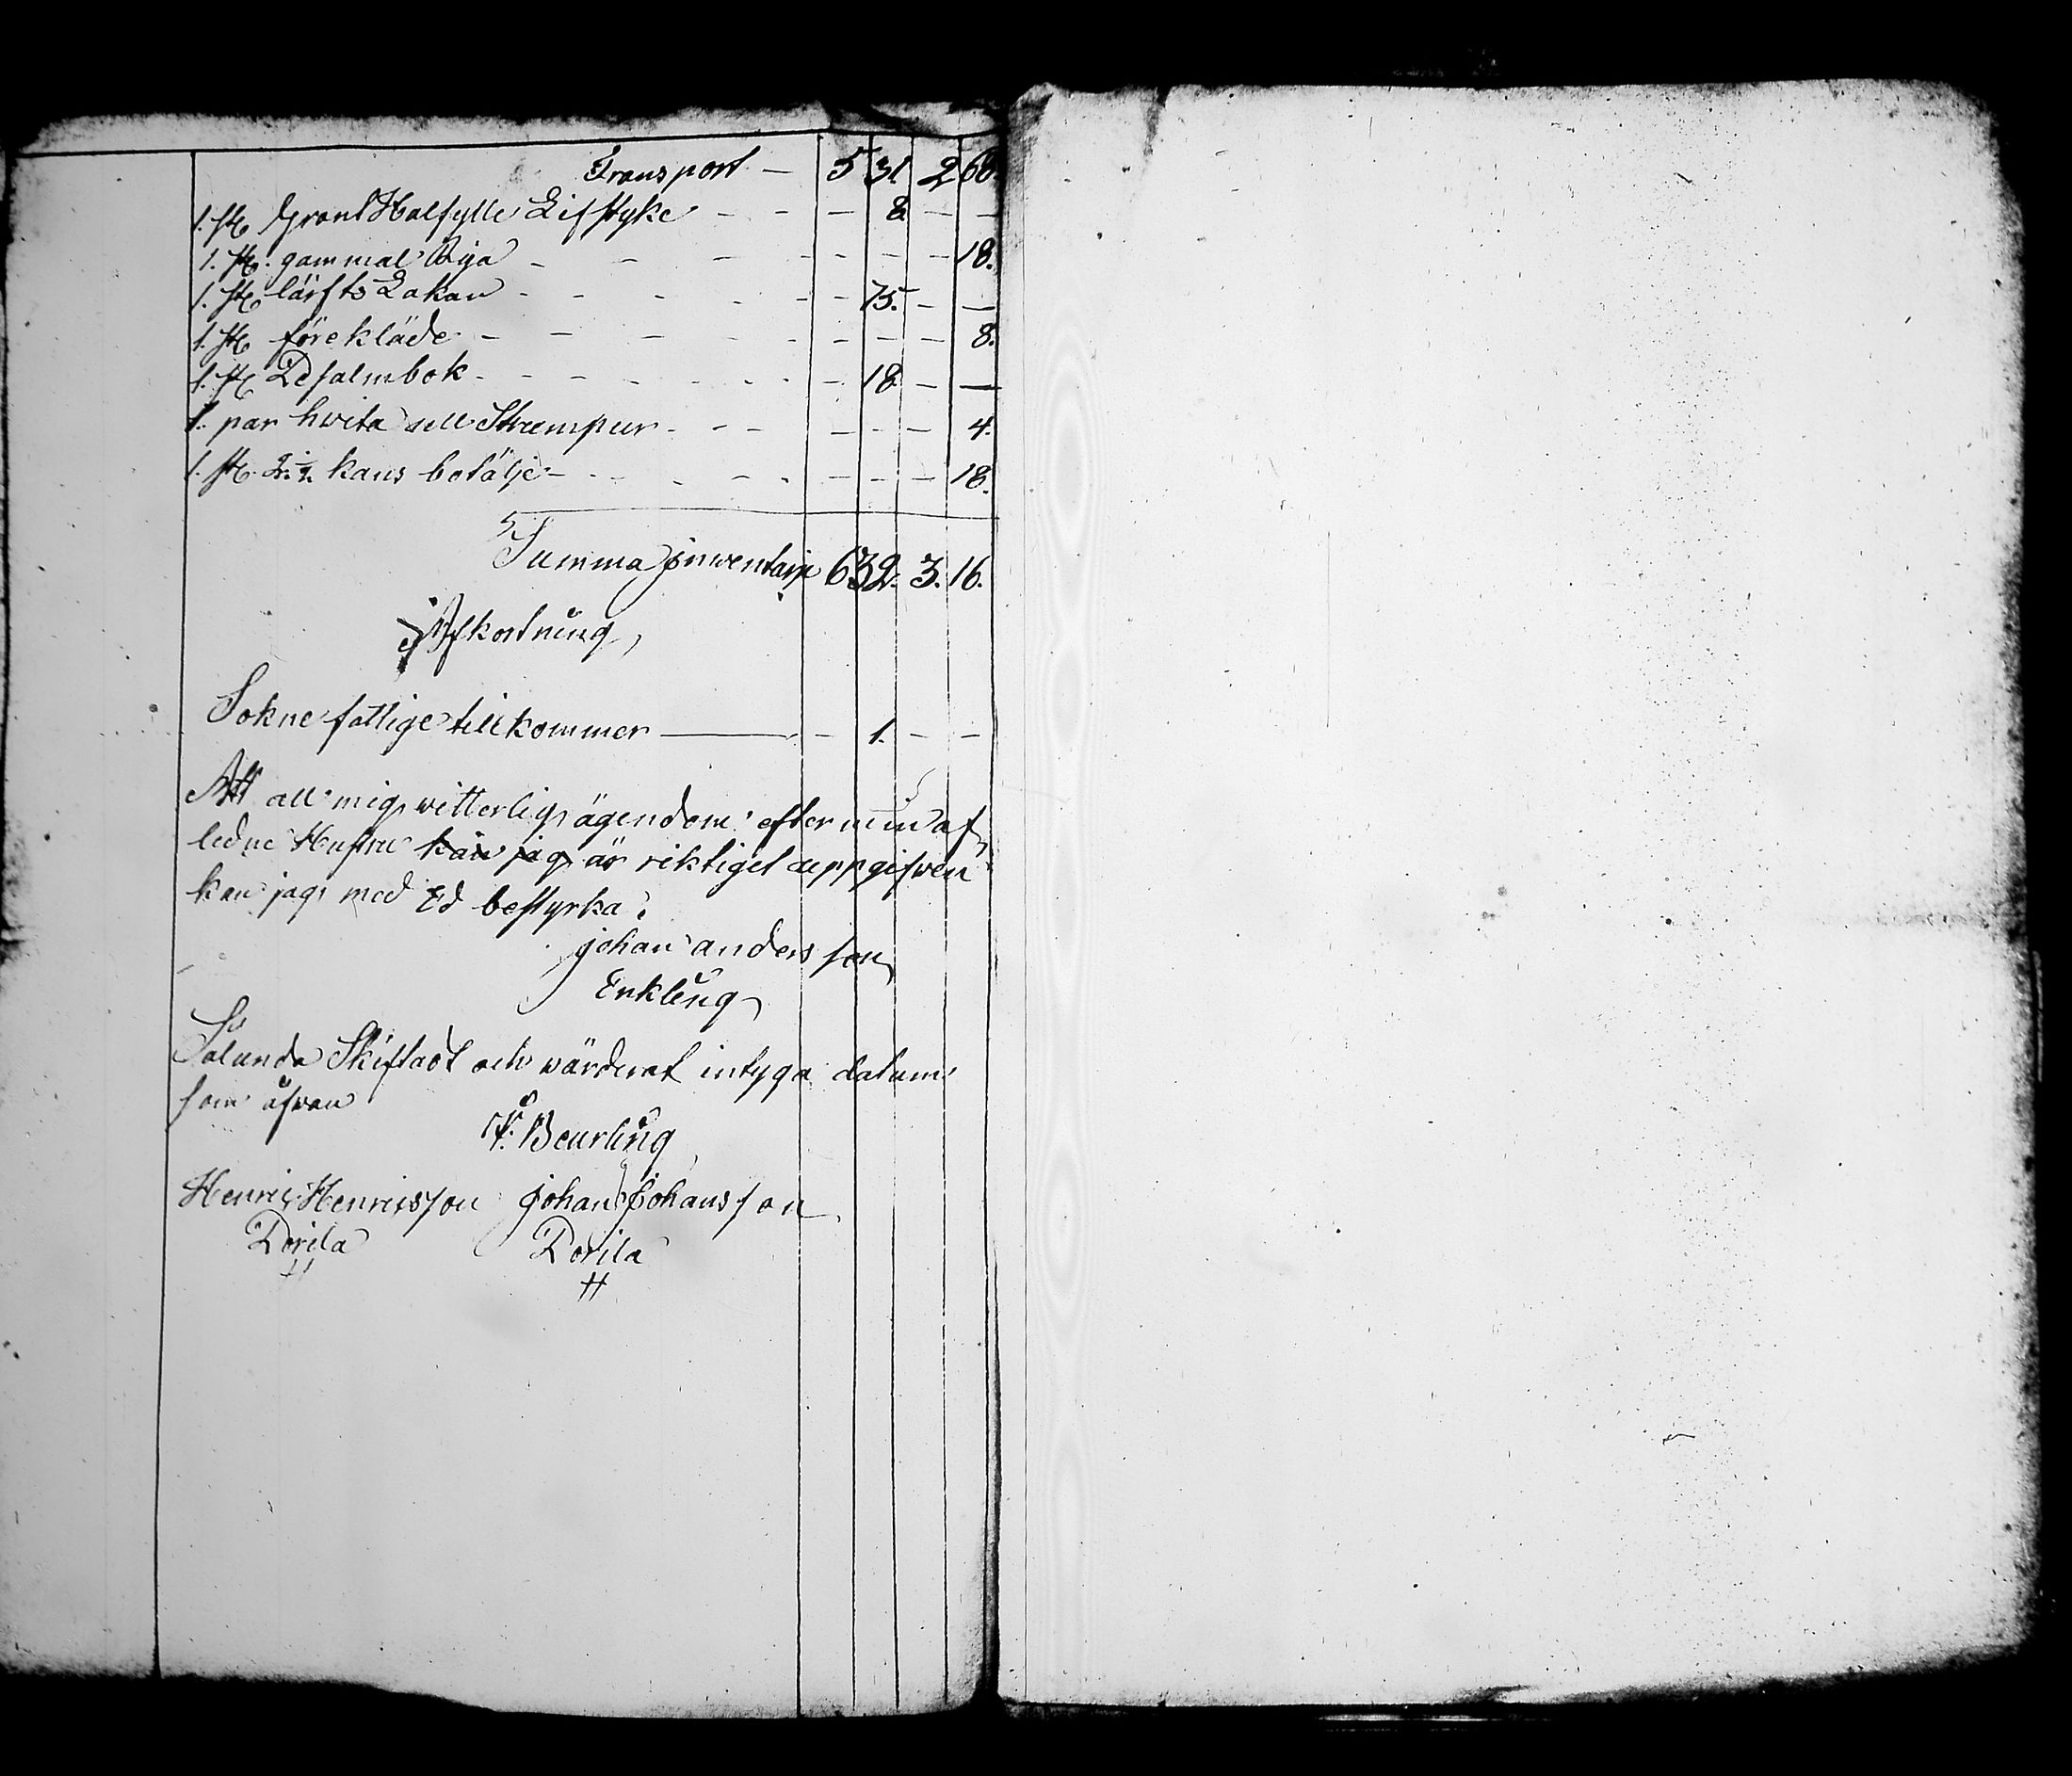 Transport — 5 31 2 68.
1. st. Grönt Halfylle Lifstyke - - — 8. — —
1. st. gammal Rya - - - - - - 18.
1. st. lärfts Lakan - - - - - 75. — —
1. st. förekläde - - - - - - 8.
1. st. Psalmbok - - - - - 18 — —
1. par hwita ull Strumpur - - - — - — 4.
1. st. kans botälje - - - - — - — 18.
Summa inwentarje 632. 3. 16.
Afkortning
Sokne fattige tillkommer — — 1. — —
Att all mig witterlig ägendom efter min af
ledne Hustru kan jag är riktiget uppgifwen
kan jag med Ed bestyrka.
johan anders son
Enkling
Sålunda Skiftadt och wärderat intyga datum
som ofwan
Beurling
Henric Henricsson johan johansson
Dorila Dorila